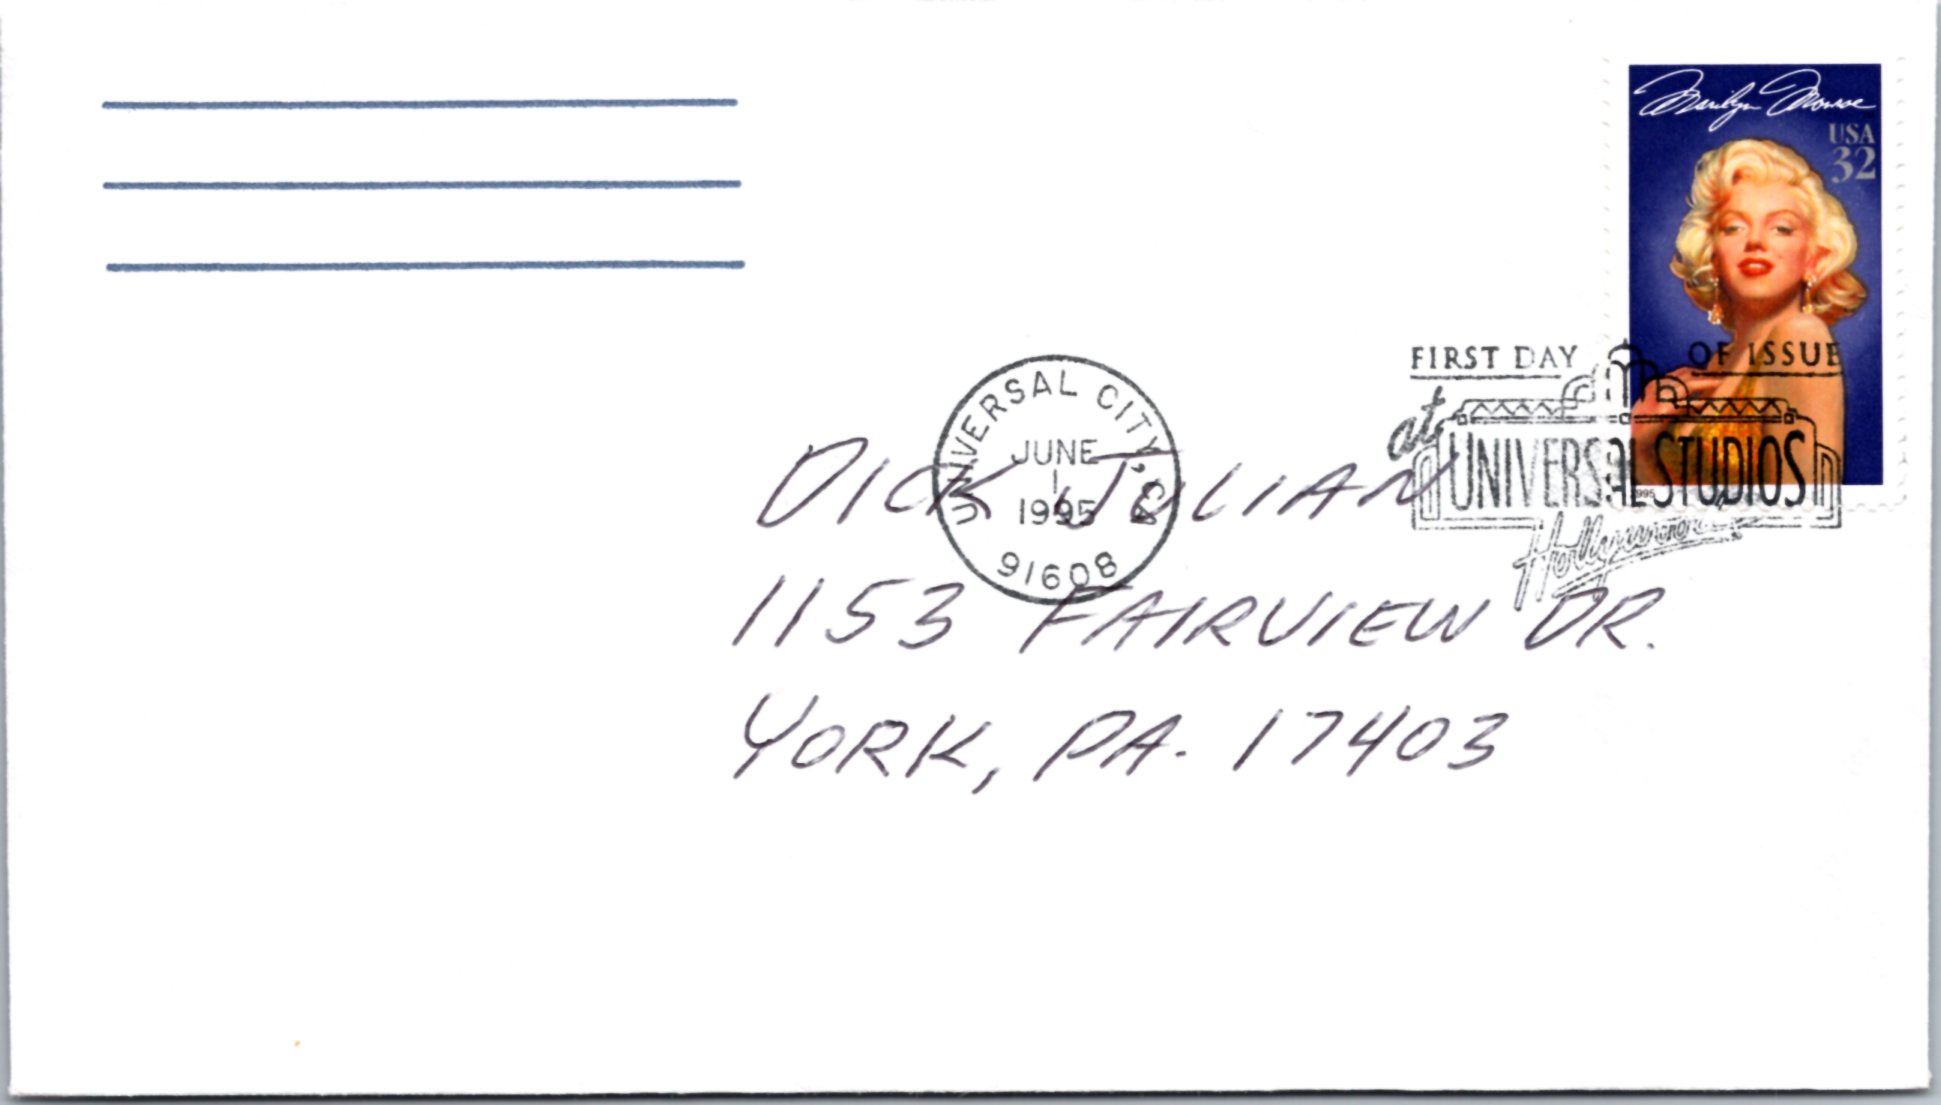 Marilyn Monroe
USA
32
FIRST DAY OF ISSUE
at
UNIVERSAL STUDIOS
Hollywood
1995
UNIVERSAL CITY, CA
JUNE
1
1995
91608
DICK JULIAN
1153 FAIRVIEW DR.
YORK, PA. 17403